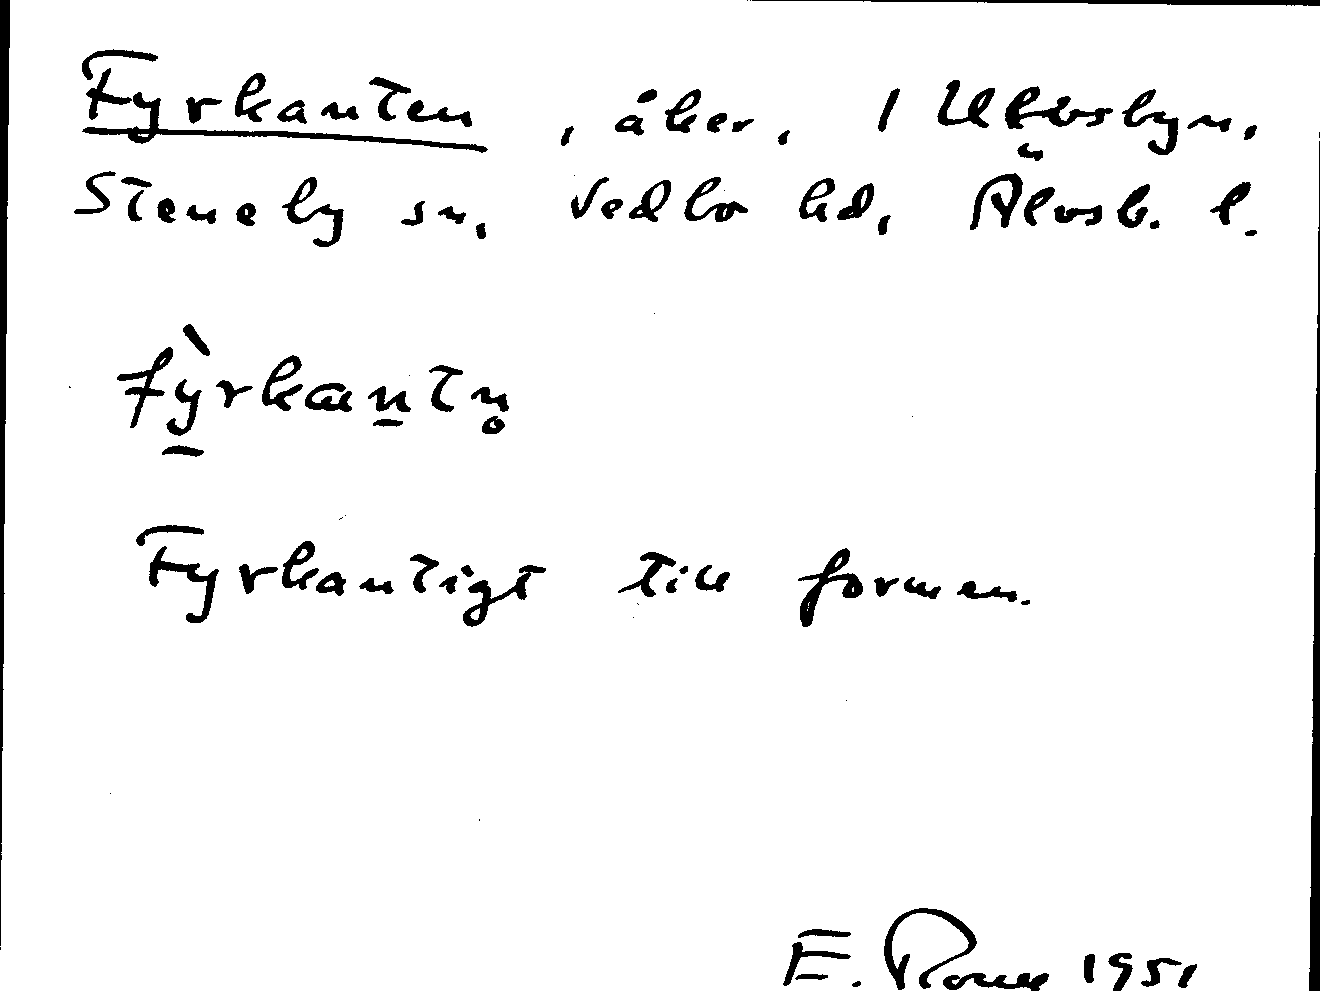 Fyrkanten, åker, 1 Ulvsbyn,
Steneby sn, Vedbo hd, Älvsb. l.
fỳ̱rkaṉtn̥
Fyrkantigt till formen.
E. 1951